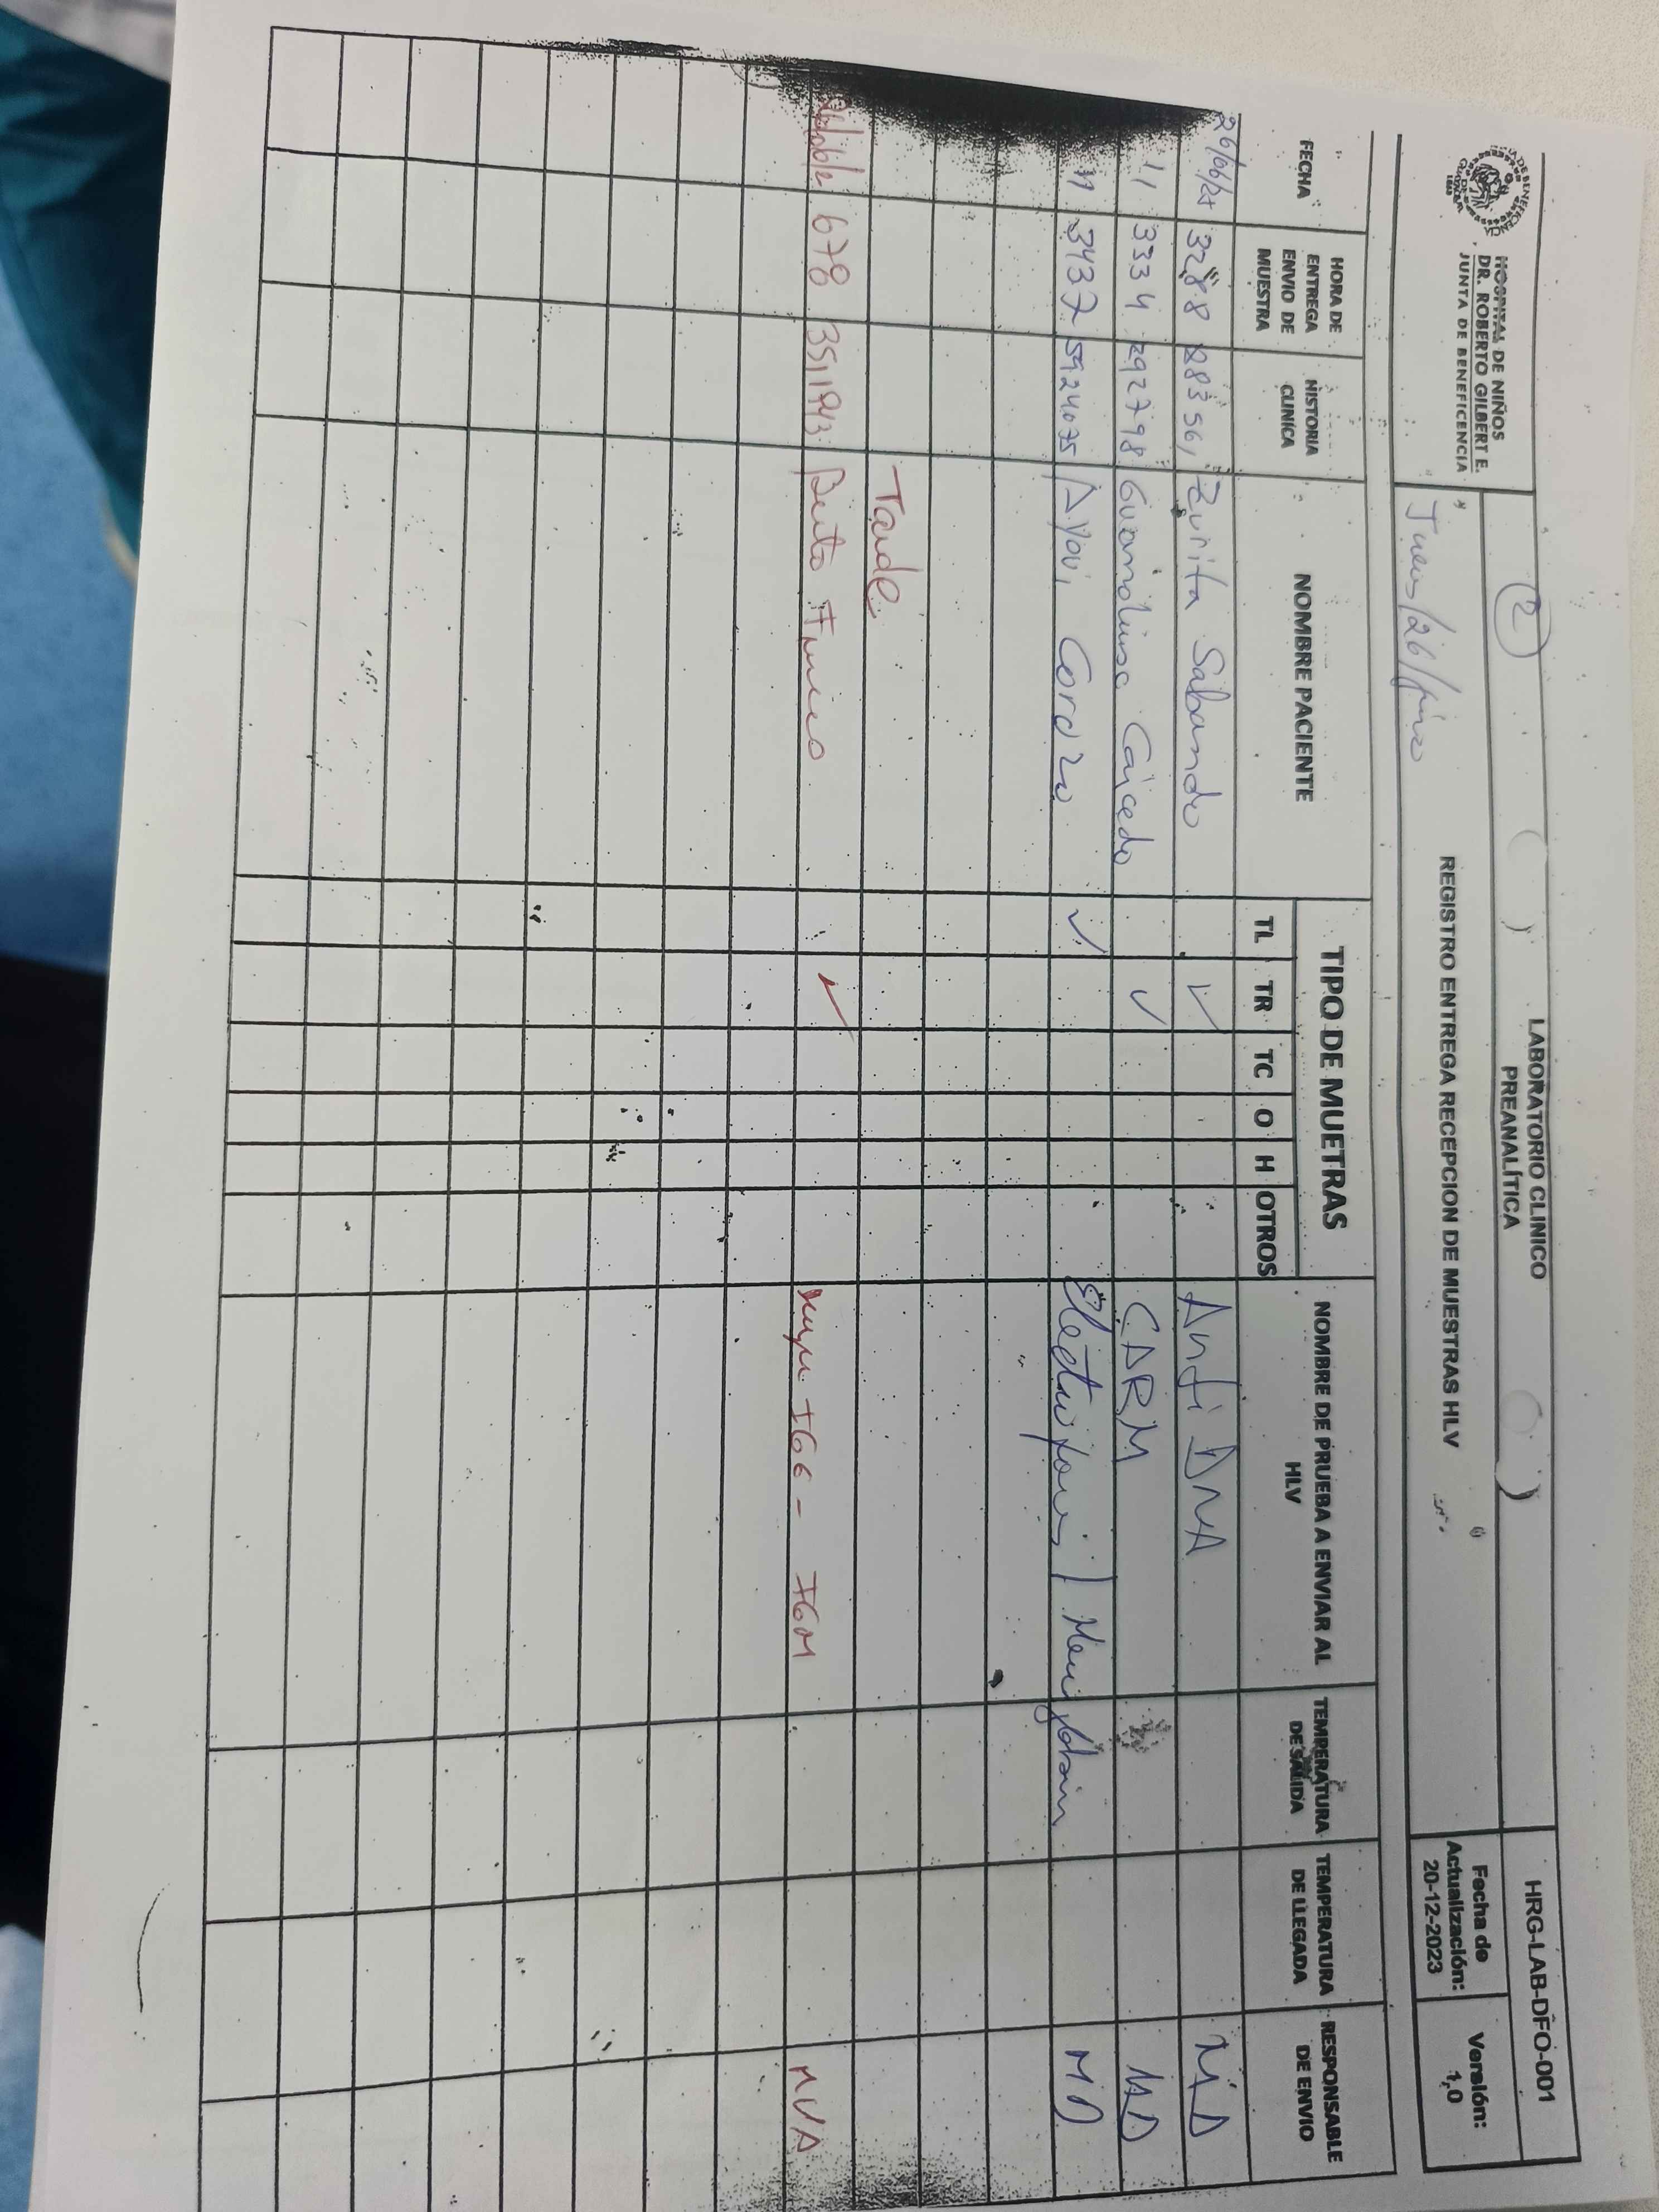 HOSPITAL DE NIÑOS
DR. ROBERTO GILBERT E.
JUNTA DE BENEFICENCIA
2
LABORATORIO CLINICO
PREANALÍTICA
HRG-LAB-DFO-001
REGISTRO ENTREGA RECEPCION DE MUESTRAS HLV
Fecha de
Actualización:
20-12-2023
Versión:
1,0
FECHA
HORA DE
ENTREGA
ENVIO DE
MUESTRA
HISTORIA
CLINICA
NOMBRE PACIENTE
TIPO DE MUETRAS
TL TR TC O H OTROS
NOMBRE DE PRUEBA A ENVIAR AL
HLV
TEMPERATURA
DE SALIDA
TEMPERATURA
DE LLEGADA
RESPONSABLE
DE ENVIO
3288 Zurita Sabando ✓ Anti DNA MD
11 3334 292798 Caicedo ✓ CARM MD
11 3437 ✓ MD
Tarde
678 ✓ IGG - IGM MVA